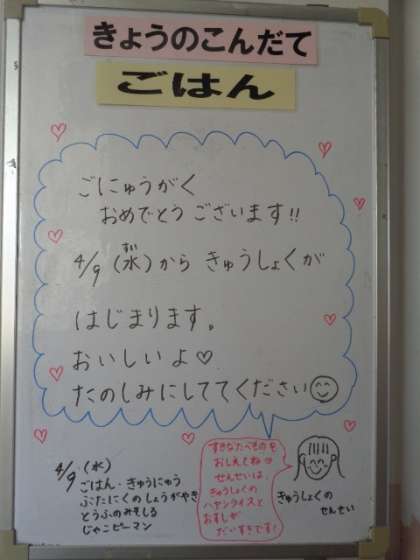 きょうのこんだて
ごはん
ごにゅうがく
おめでとうございます!!
4/9(水)からきゅうしょくが
すい
はじまります。
おいしいよ♡
たのしみにしててください
4/9(水)
ごはん・ぎゅうにゅう
ぶたにくのしょうがやき
とうふのみそしる
じゃこピーマン
すきなたべものを
おしえてね♡
せんせいは、
きゅうしょくの
ハヤシライスと
おすしが
だいすきです!
きゅうしょくの
せんせい